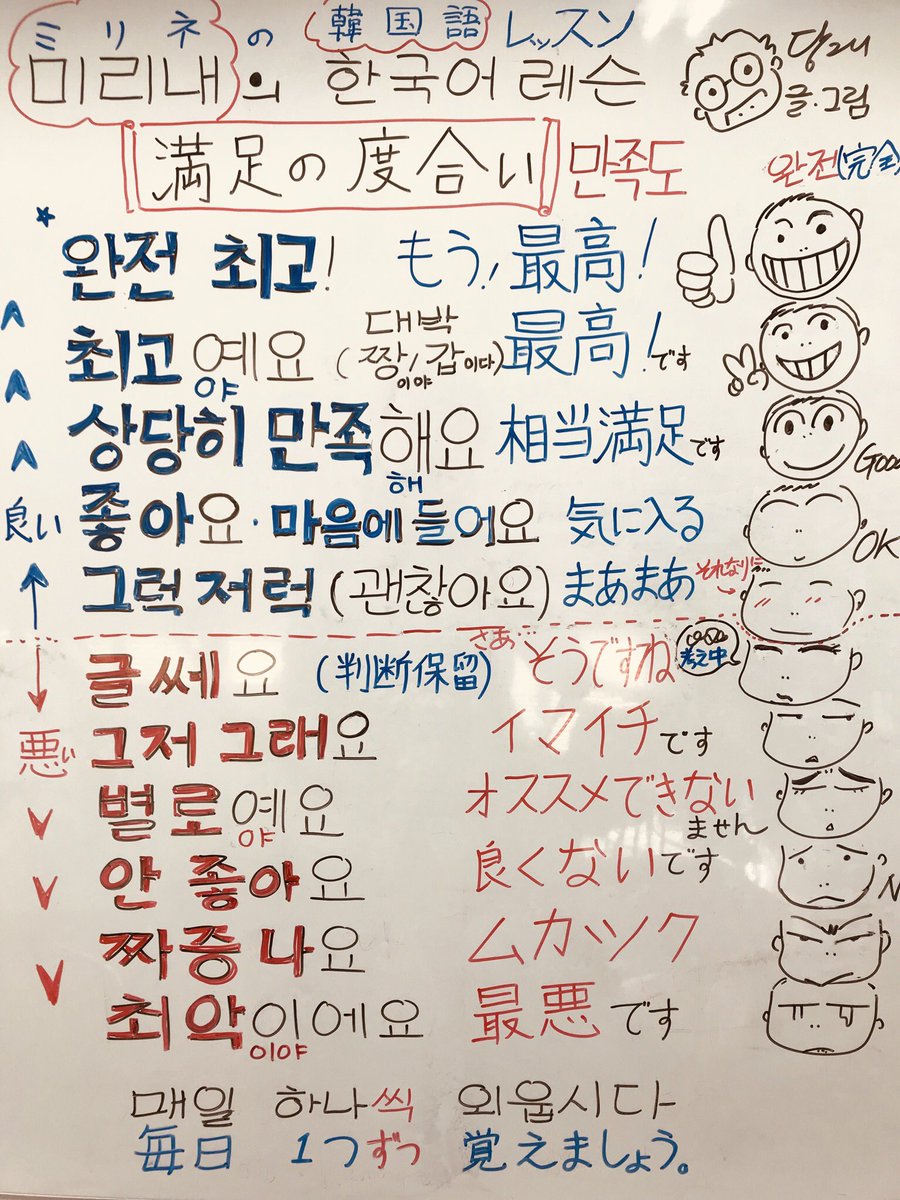 ミリネの韓国語レッスン
미리내의 한국어 레슨
글·그림
満足の度合い 만족도
완전(完全)
완전 최고! もう、最高!
최고예요 (대박 짱!갑이다) 最高!です
야 이야
상당히 만족해요 相当満足です
해 GOOD
良い 좋아요·마음에 들어요 気に入る OK
그럭저럭 (괜찮아요) まあまあ それなりに…
글쎄요 (判断保留) さあ そうですね 考え中
悪い 그저 그래요 イマイチです
별로예요 オススメできない
야 ません
안 좋아요 良くないです N
짜증나요 ムカツク
최악이에요 最悪です
이야
매일 하나씩 외웁시다
毎日 1つずつ 覚えましょう。